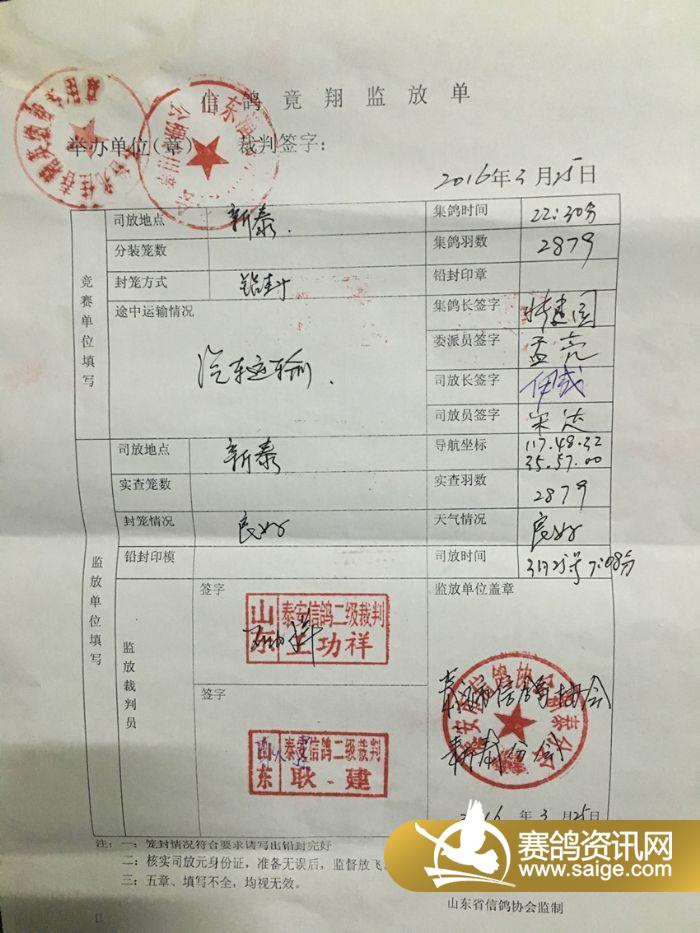 信鸽竟翔监放单
举办单位(章) 裁判签字:
2016年3月25日
竞赛单位填写
司放地点 新泰. 集鸽时间 22:30分
分装笼数 集鸽羽数 2879
封笼方式 铅封 铅封印章
途中运输情况 集鸽长签字
汽车运输. 委派员签字 孟亮
司放长签字
司放员签字 宋达
监放单位填写
司放地点 新泰 导航坐标 117.48.32
35.57.00
实查笼数 实查羽数 2879
封笼情况 良好 天气情况 良好
铅封印模 司放时间 3月25号7:08分
监放裁判员
签字 监放单位盖章
山东 泰安信鸽二级裁判
王功祥
泰安市信鸽协会
新泰分会
签字
山东 泰安信鸽二级裁判
耿建
2016年3月25日
注: 一: 笼封情况符合要求请写出铅封完好
二: 核实司放元身份证，准备无误后，监督放飞。
三: 五章、填写不全，均视无效。
山东省信鸽协会监制
赛鸽资讯网
www.saige.com